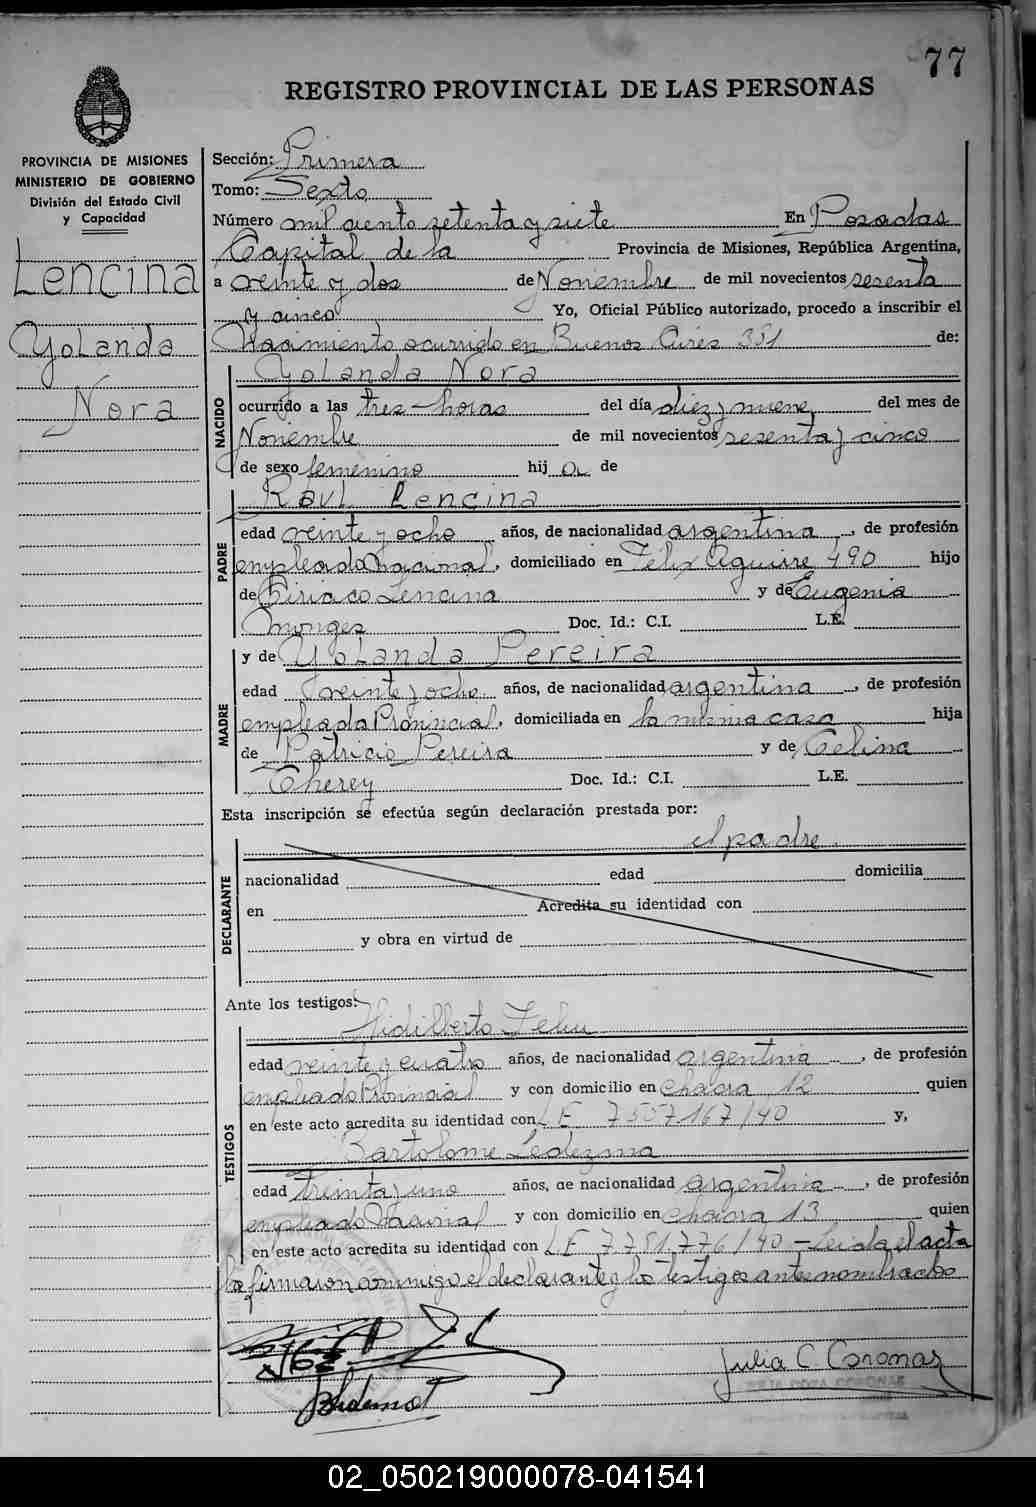 77
REGISTRO PROVINCIAL DE LAS PERSONAS
PROVINCIA DE MISIONES
MINISTERIO DE GOBIERNO
División del Estado Civil
y Capacidad
Lencina
Yolanda
Nora
Sección: Primera
Tomo: Sexto
Número mil ciento setenta y siete En Posadas
Capital de la Provincia de Misiones, República Argentina,
a veinte y dos de Noviembre de mil novecientos sesenta
y cinco Yo, Oficial Público autorizado, procedo a inscribir el
Nacimiento ocurrido en Buenos Aires 351 de:
Yolanda Nora
NACIDO
ocurrido a las tres horas del día diez y nueve del mes de
Noviembre de mil novecientos sesenta y cinco
de sexo femenino hij a de
Raul Lencina
PADRE
edad veinte y ocho años, de nacionalidad argentina, de profesión
empleado nacional, domiciliado en Felix Aguirre 490 hijo
de Ciriaco Lencina y de Eugenia
Monges Doc. Id.: C.I. L.E.
y de Yolanda Pereira
MADRE
edad veinte y ocho años, de nacionalidad argentina, de profesión
empleada Provincial, domiciliada en la misma casa hija
de Patricio Pereira y de Celina
Cherey Doc. Id.: C.I. L.E.
Esta inscripción se efectúa según declaración prestada por:
el padre
DECLARANTE
nacionalidad edad domicilia
en Acredita su identidad con
y obra en virtud de
Ante los testigos:
Hidilberto
TESTIGOS
edad veinte y cuatro años, de nacionalidad argentina, de profesión
empleado Provincial y con domicilio en chacra 12 quien
en este acto acredita su identidad con LE 7557167/40 y,
Bartolome Ledezma
edad treinta y uno años, de nacionalidad argentina, de profesión
empleado y con domicilio en chacra 13 quien
en este acto acredita su identidad con LE 7751776/40 - Leida el acta
la firmaron conmigo el declarante y los testigos antes nombrados
Julia C Coronas
02_050219000078-041541